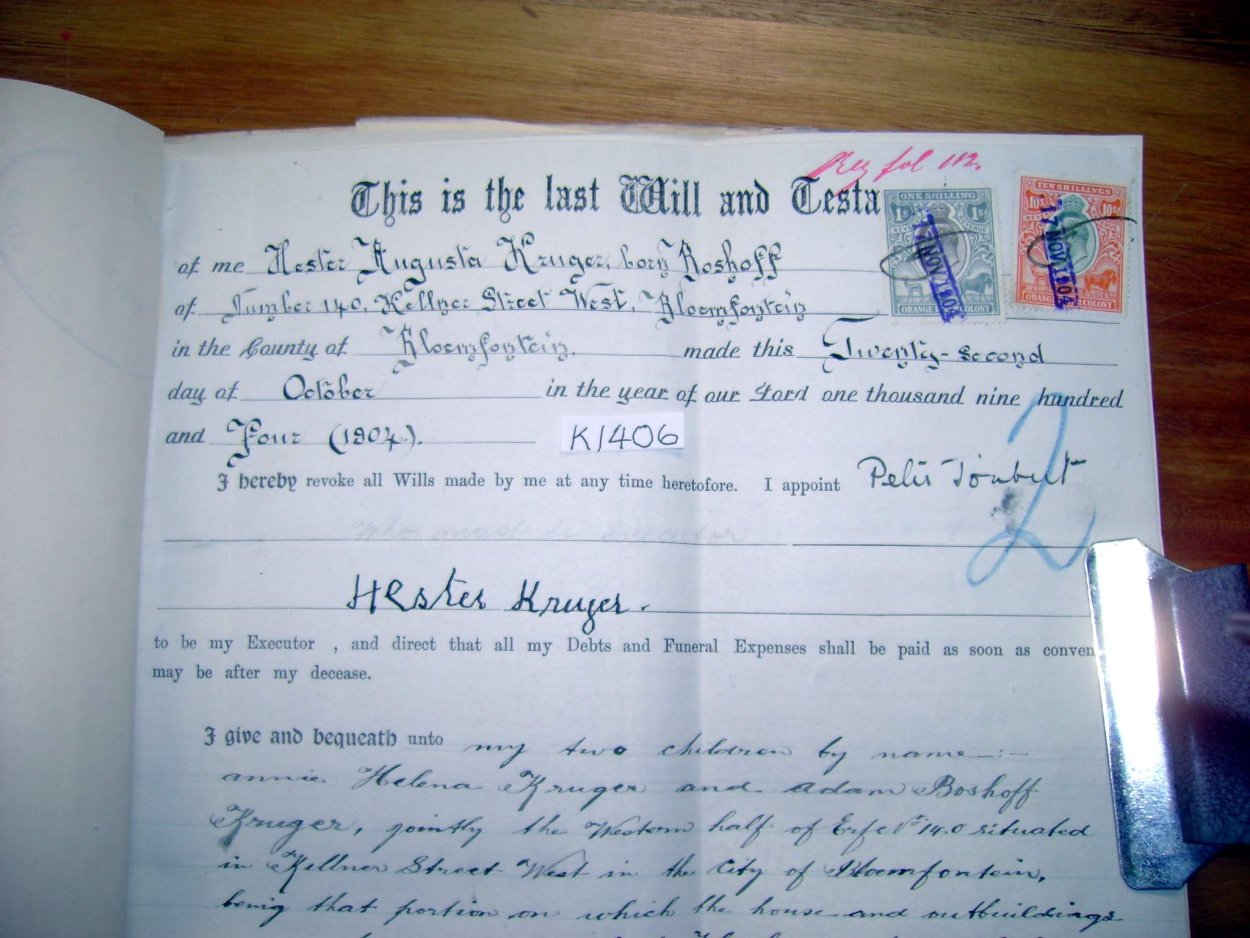 Reg fol 112.
This is the last Will and Testa
ONE SHILLING
1s 1s
17 NOV 1904
ORANGE COLONY
TEN SHILLINGS
10s 10s
17 NOV 1904
ORANGE COLONY
of me Hester Augusta Kruger, born Boshoff
of Number 140, Kellner Street West, Bloemfontein
in the County of Bloemfontein, made this Twenty-second
day of October in the year of our Lord one thousand nine hundred
and Four (1904).
K1406
2
I hereby revoke all Wills made by me at any time heretofore. I appoint
Who must be executor
Hester Kruger.
to be my Executor , and direct that all my Debts and Funeral Expenses shall be paid as soon as conven
may be after my decease.
I give and bequeath unto my two children by name:-
annie Helena Kruger and Adam Boshoff
Kruger, jointly the Western half of Erf No 140 situated
in Kellner Street West in the City of Bloemfontein,
being that portion on which the house and outbuildings